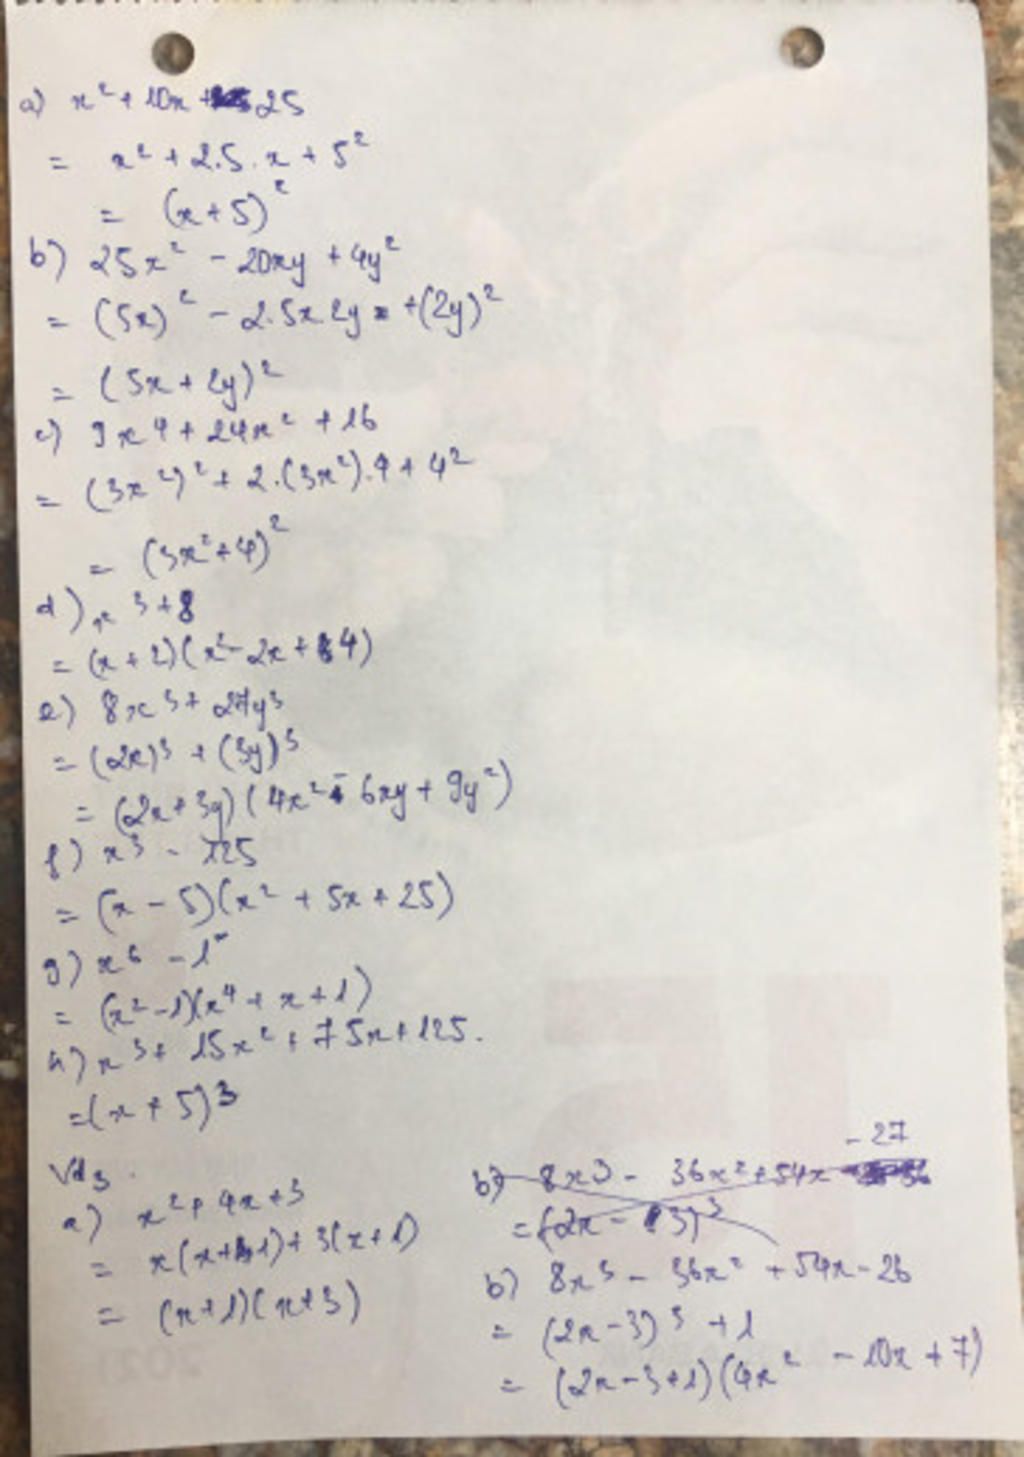 a) x² + 10x + 25
= x² + 2.5.x + 5²
= (x+5)²
b) 25x² - 20xy + 4y²
= (5x)² - 2.5x.2y + (2y)²
= (5x + 2y)²
c) 9x⁴ + 24x² + 16
= (3x²)² + 2.(3x²).4 + 4²
= (3x² + 4)²
d) x³ + 8
= (x + 2)(x² - 2x + 4)
e) 8x³ + 27y³
= (2x)³ + (3y)³
= (2x + 3y)(4x² - 6xy + 9y²)
f) x³ - 125
= (x - 5)(x² + 5x + 25)
g) x⁶ - 1
= (x² - 1)(x⁴ + x + 1)
h) x³ + 15x² + 75x + 125.
= (x + 5)³
Vd3.
a) x² + 4x + 3
= x(x+1) + 3(x+1)
= (x+1)(x+3)
b) 8x³ - 36x² + 54x - 27
= (2x - 3)³
b) 8x³ - 36x² + 54x - 26
= (2x - 3)³ + 1
= (2x - 3 + 1)(4x² - 10x + 7)
2021